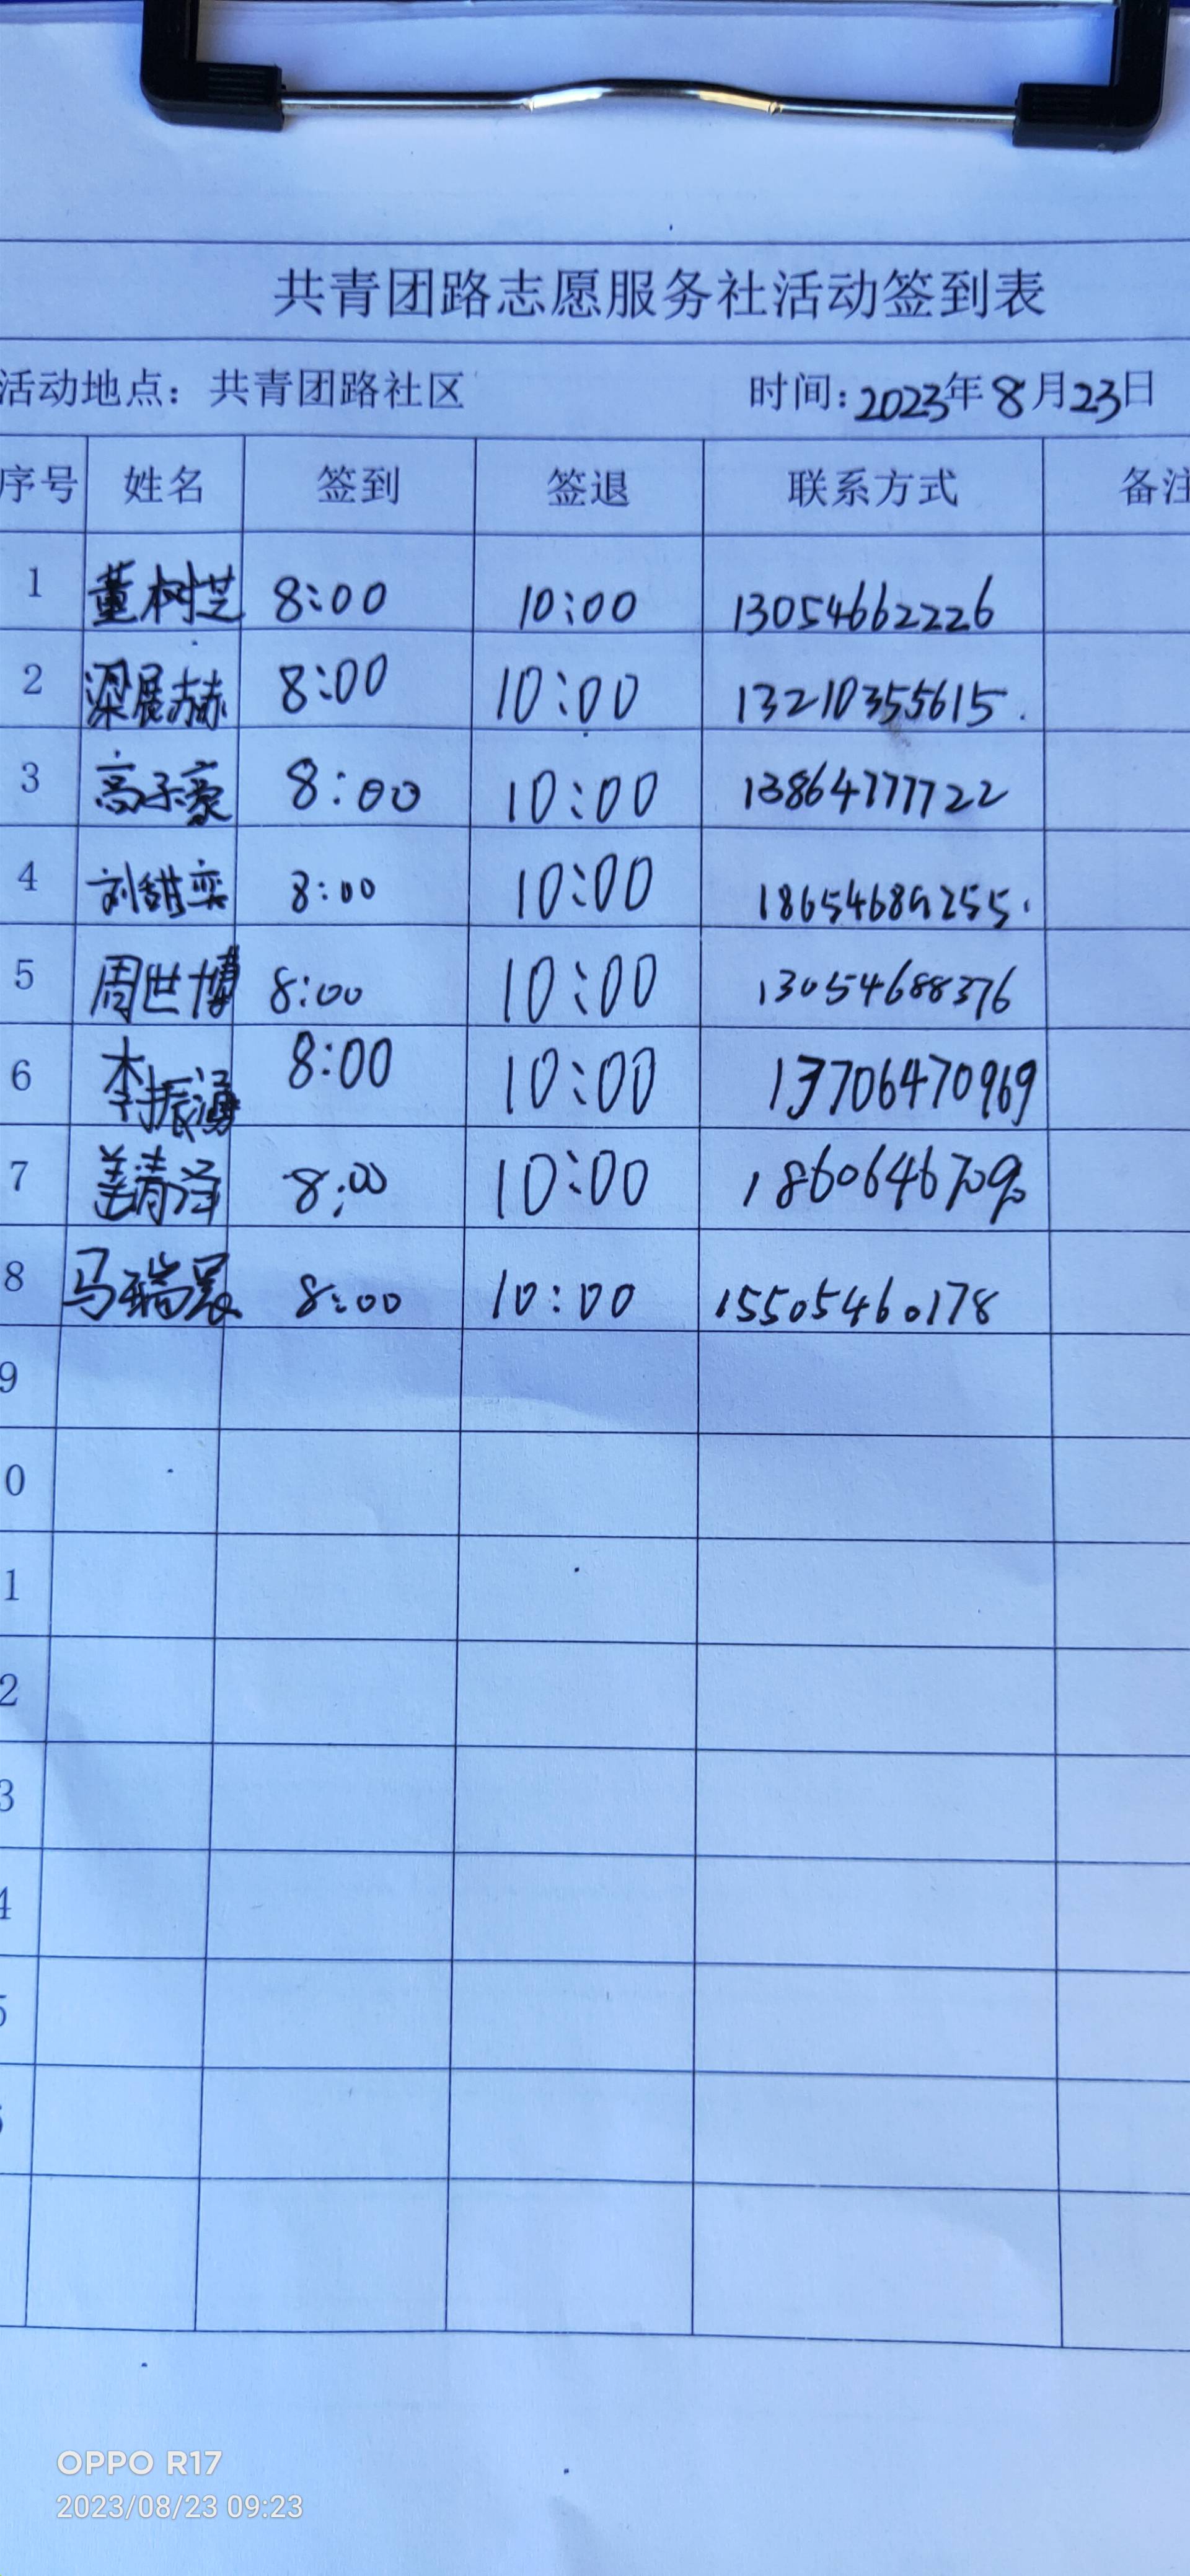 共青团路志愿服务社活动签到表
活动地点：共青团路社区 时间：2023年8月23日
序号 姓名 签到 签退 联系方式 备注
1 董树芝 8:00 10:00 13054662226
2 梁展赫 8:00 10:00 13210355615.
3 高子豪 8:00 10:00 13864777722
4 刘甜奕 8:00 10:00
5 周世博 8:00 10:00 13054688376
6 李振涌 8:00 10:00 13706470969
7 姜清泽 8:00 10:00
8 马瑞晨 8:00 10:00 15505460178
9
0
1
2
3
4
5
OPPO R17
2023/08/23 09:23